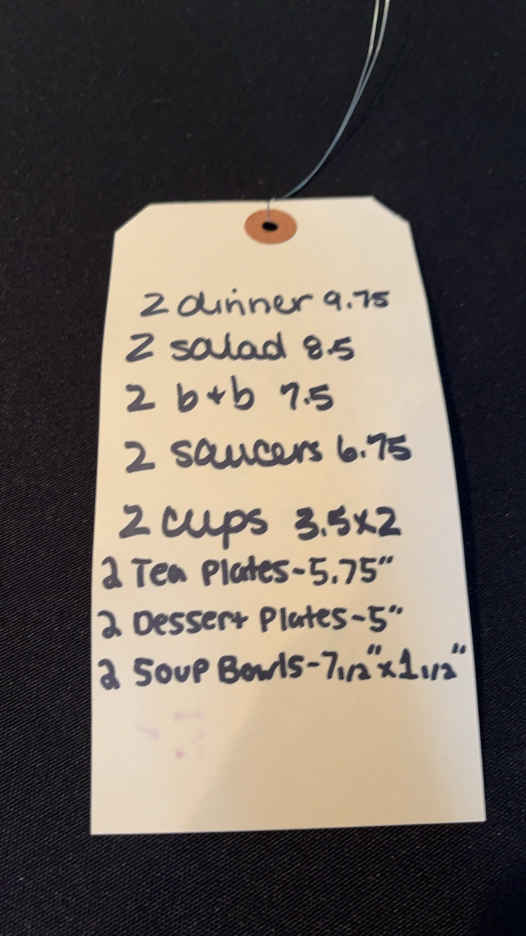 2 dinner 9.75
2 salad 8.5
2 b+b 7.5
2 saucers 6.75
2 cups 3.5x2
2 Tea Plates-5.75"
2 Dessert Plates-5"
2 Soup Bowls-7 1/2"x1 1/2"